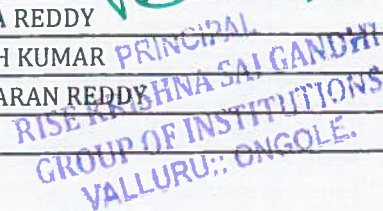 A REDDY
H KUMAR
ARAN REDDY
PRINCIPAL
RISE KRISHNA SAI GANDHI
GROUP OF INSTITUTIONS
VALLURU:: ONGOLE.